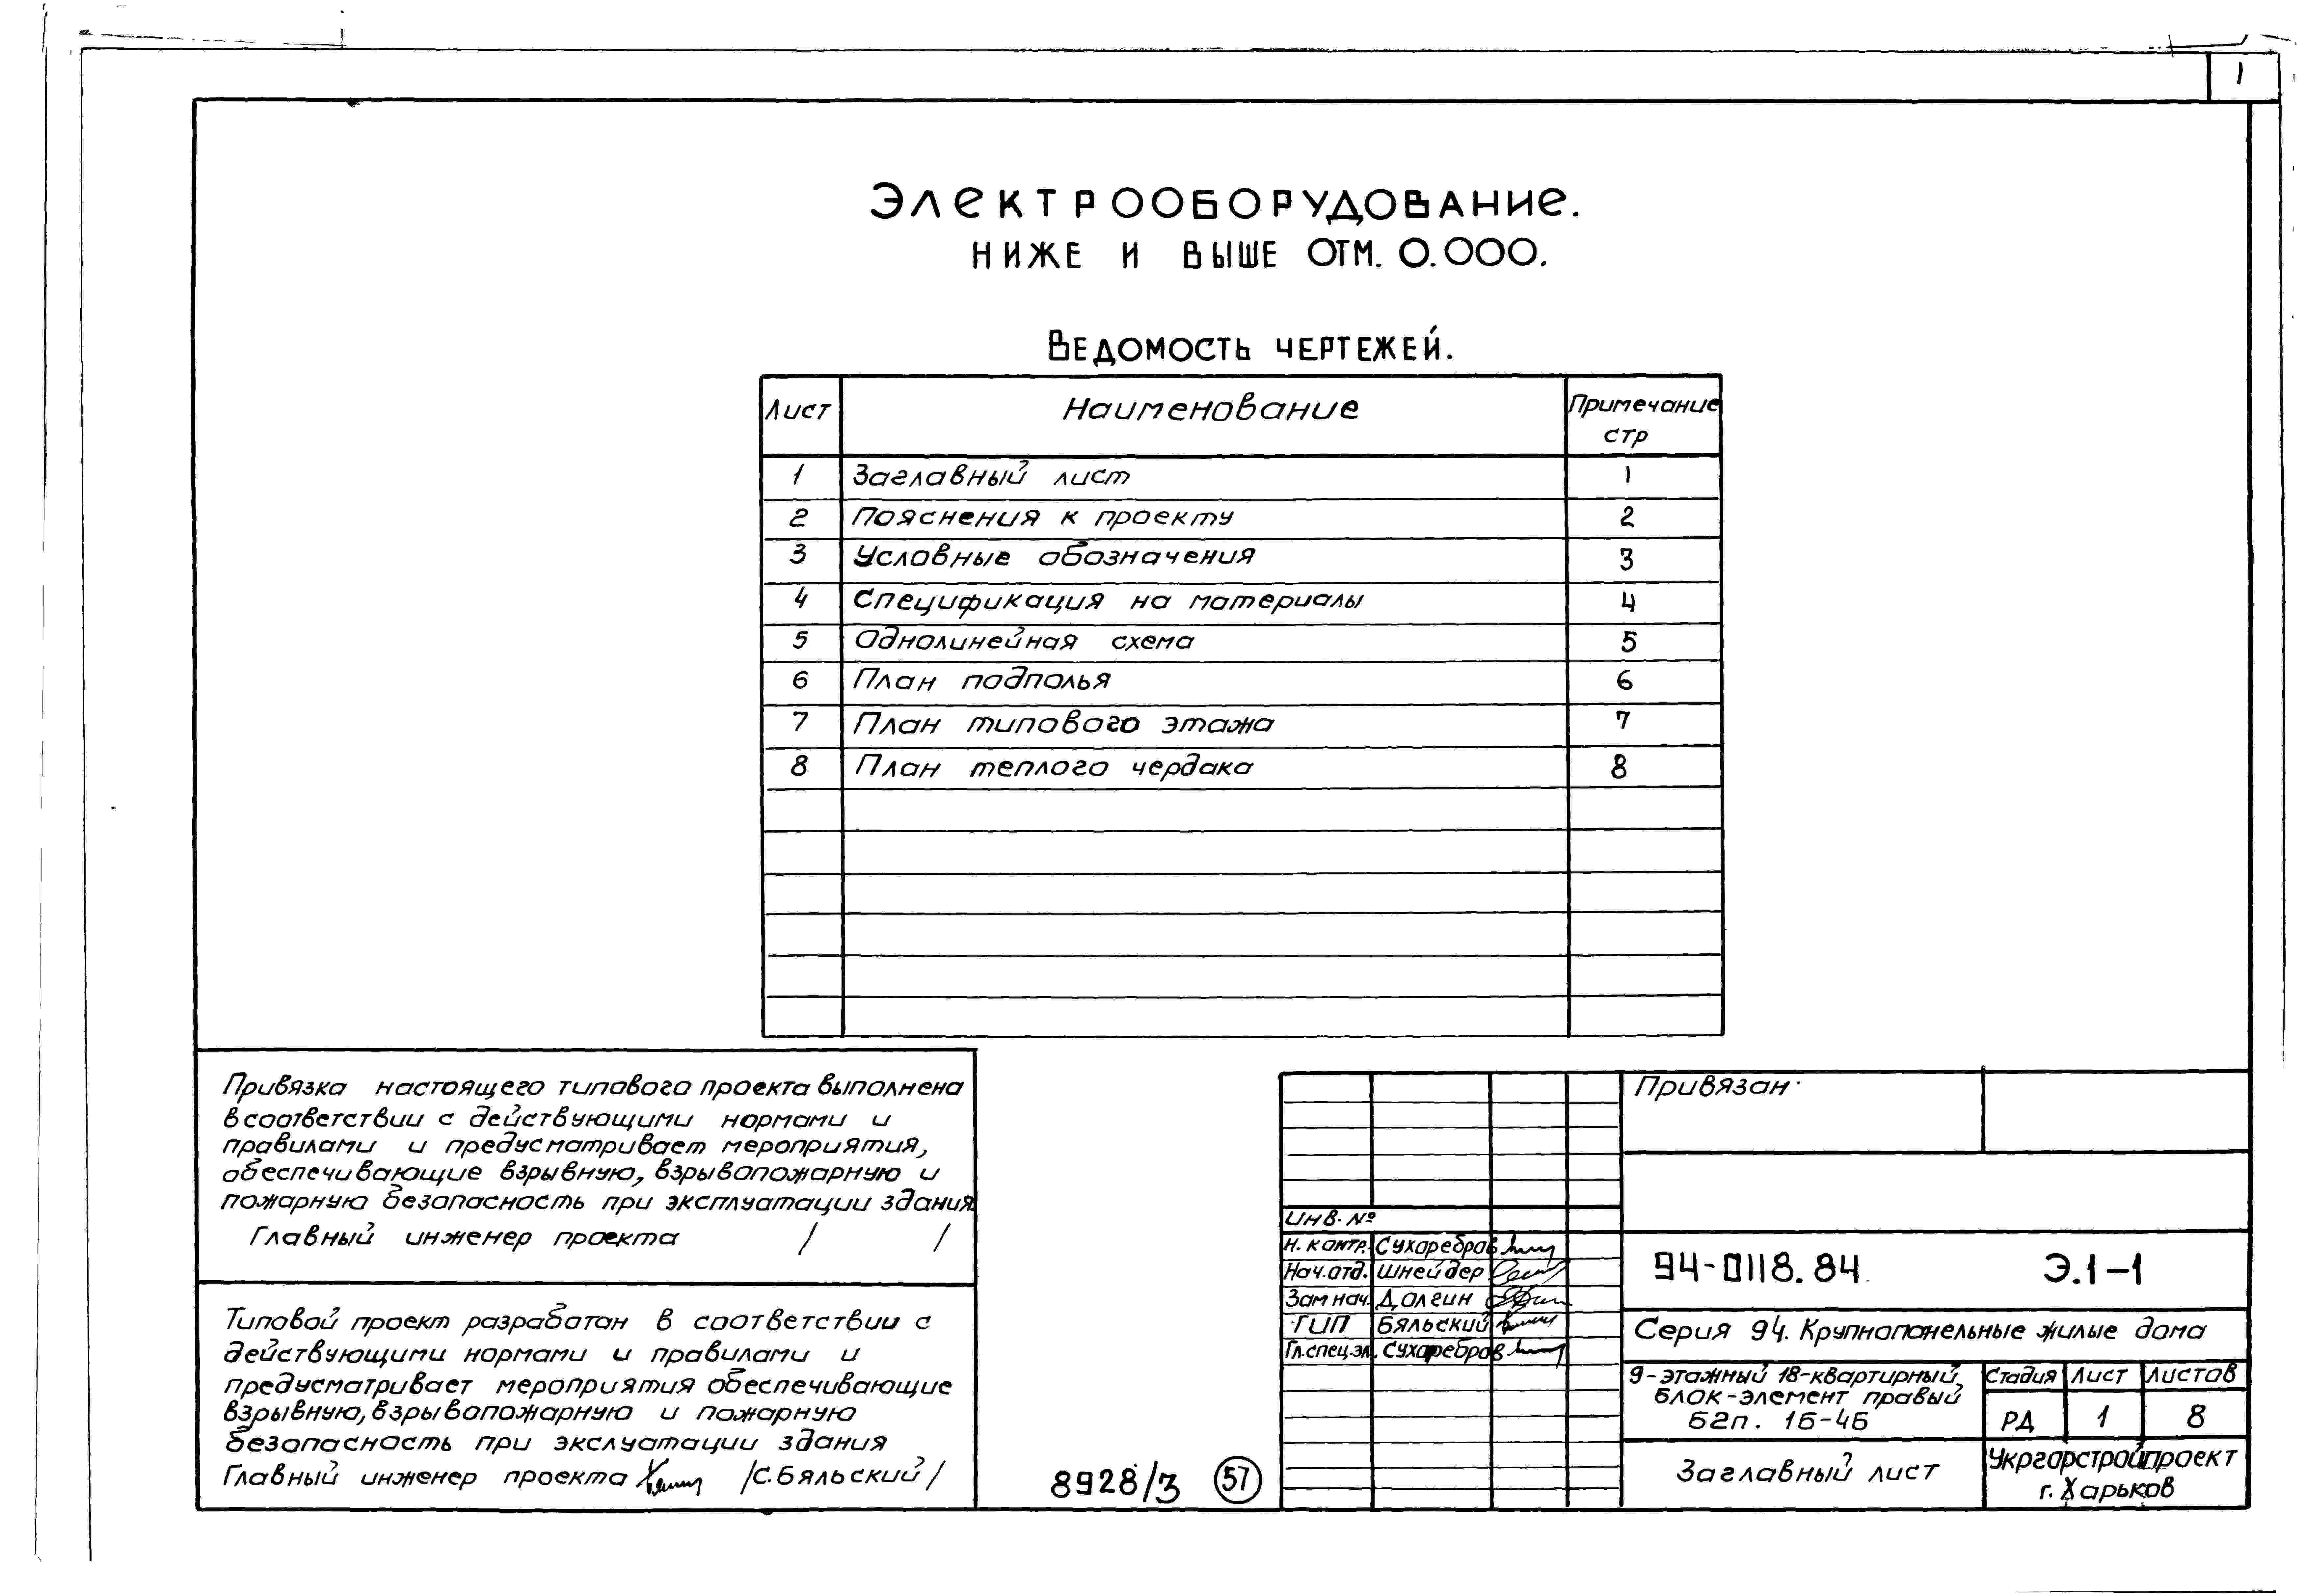 1
ЭЛЕКТРООБОРУДОВАНИЕ.
НИЖЕ И ВЫШЕ ОТМ. 0.000.
ВЕДОМОСТЬ ЧЕРТЕЖЕЙ.
Лист Наименование Примечание
стр
1 Заглавный лист 1
2 Пояснения к проекту 2
3 Условные обозначения 3
4 Спецификация на материалы 4
5 Однолинейная схема 5
6 План подполья 6
7 План типового этажа 7
8 План теплого чердака 8
Привязка настоящего типового проекта выполнена
в соответствии с действующими нормами и
правилами и предусматривает мероприятия,
обеспечивающие взрывную, взрывопожарную и
пожарную безопасность при эксплуатации здания.
Главный инженер проекта / /
Типовой проект разработан в соответствии с
действующими нормами и правилами и
предусматривает мероприятия обеспечивающие
взрывную, взрывопожарную и пожарную
безопасность при экслуатации здания
Главный инженер проекта /С. Бяльский/
8928/3 57
Привязан:
Инв. №
Н. контр. Сухаребров
Нач. отд. Шнейдер
Зам нач. Долгин
ГИП Бяльский
Гл. спец. эл. Сухаребров
94-0118.84 Э.1-1
Серия 94. Крупнопанельные жилые дома
9-этажный 18-квартирный
блок-элемент правый
Б2п. 1Б-4Б
Стадия Лист Листов
РД 1 8
Заглавный лист
Укргорстройпроект
г. Харьков